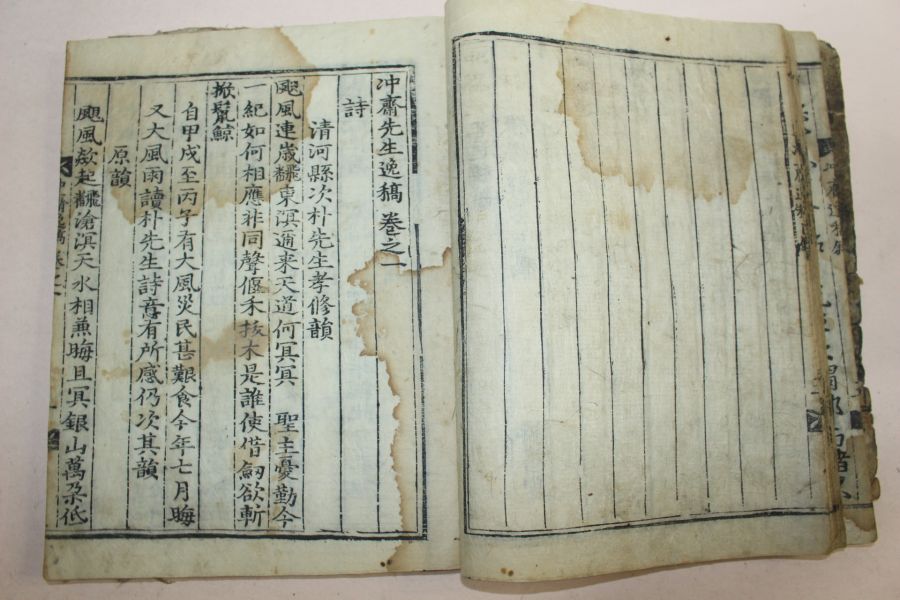 冲齋先生逸稿 卷之一
詩
清河縣次朴先生孝修韻
颶風連歲飜東溟邇來天道何冥冥 聖主憂勤今
一紀如何相應非同聲偃禾拔木是誰使借劒欲斬
掀鬣鯨
自甲戌至丙子有大風災民甚艱食今年七月晦
又大風雨讀朴先生詩意有所感仍次其韻
原韻
颶風欻起飜滄溟天水相兼晦且冥銀山萬朶低